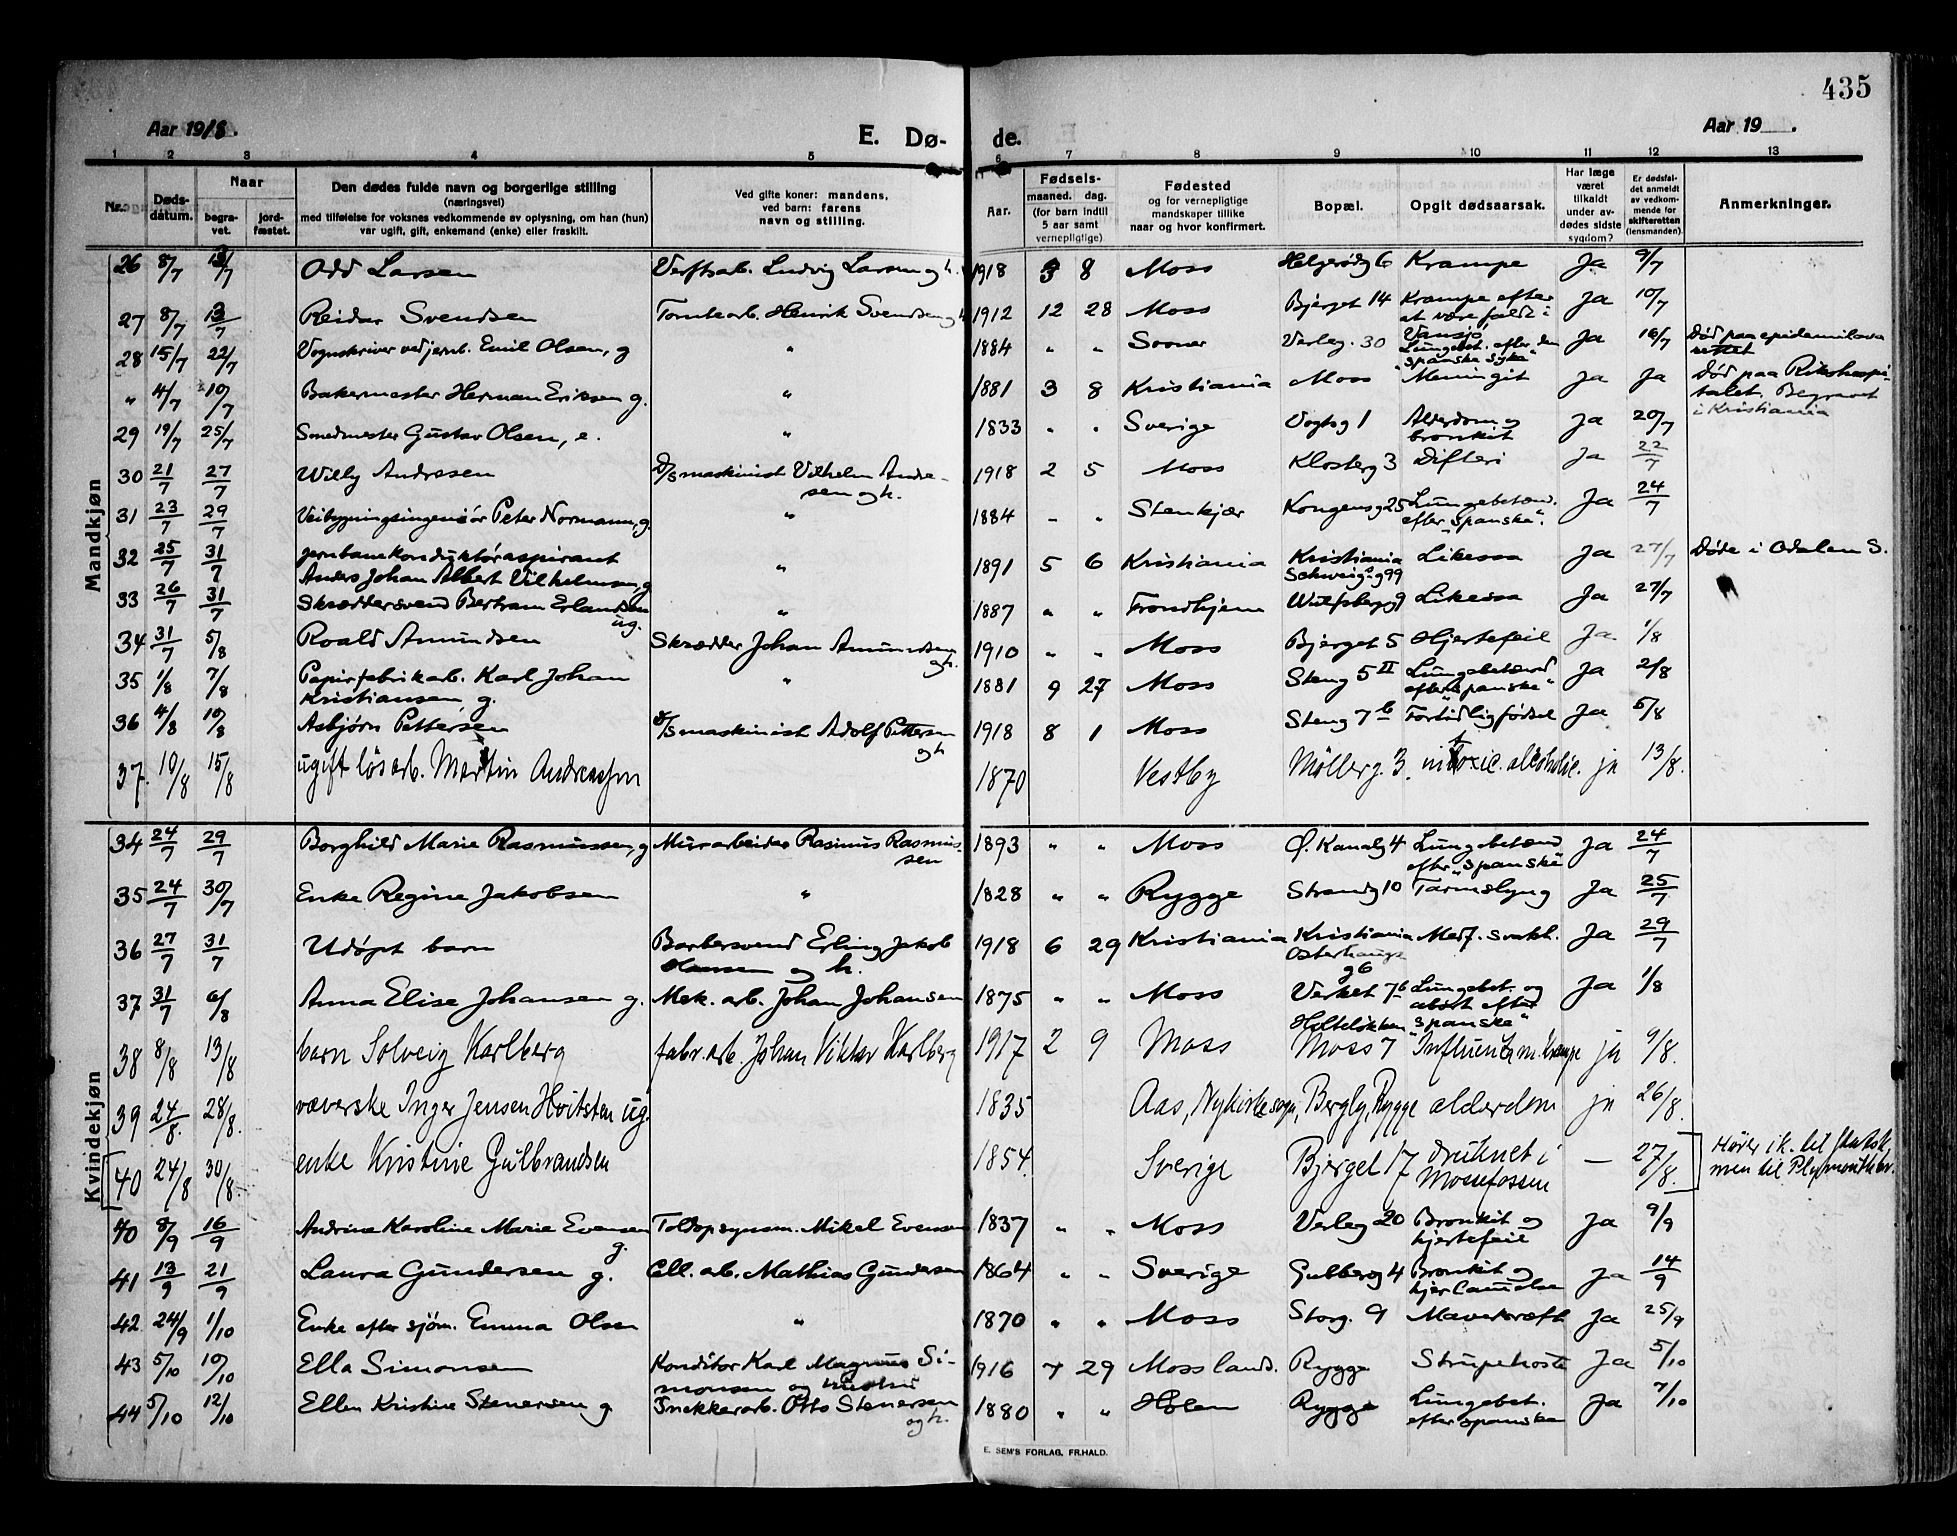 435
Aar 1918. E. Dø- de. Aar 19 .
1 2 3 4 5 6 7 8 9 10 11 12 13
Nr. Døds-datum. Naar begra-vet. jord-fæstet. Den dødes fulde navn og borgerlige stilling (næringsvei) med tilføielse for voksnes vedkommende av oplysning, om han (hun) var ugift, gift, enkemand (enke) eller fraskilt. Ved gifte koner: mandens, ved barn: farens navn og stilling. Aar. Fødsels- maaned. dag. (for barn indtil 5 aar samt vernepligtige) Fødested og for vernepligtige mandskaper tillike naar og hvor konfirmert. Bopæl. Opgit dødsaarsak. Har læge været tilkaldt under av-dødes sidste sygdom? Er dødsfal-det anmeldt av vedkom-mende for skifteretten (lensmanden). Anmerkninger.
Mandkjøn
26 8/7 13/7 Odd Larsen Verftsarb. Ludvig Larsen og h. 1918 3 8 Moss Helgerødg 6 Krampe Ja 9/7
27 8/7 13/7 Reidar Svendsen Tomtearb. Henrik Svendsen og h 1912 12 28 Moss Bjerget 14 Krampe efter at være faldt i Vansjø Ja 10/7
28 15/7 22/7 Vognskriver ved jernb. Emil Olsen, g " 1884 " " Sooner Verleg. 30 Lungebet. efter den "spanske syke" Ja 16/7 Død paa epidemilasa rettet
" 4/7 10/7 Bakermester Herman Eriksen g. " 1881 3 8 Kristiania Moss Meningit Ja Ja Død paa Rikshospi-talet. Begravet i Kristiania
29 19/7 25/7 Smedmester Gustav Olsen, e. " 1833 " " Sverige Vogtsg 1 Alderdom og bronkit Ja 20/7
30 21/7 27/7 Willy Andresen D/S maskinist Vilhelm Andre-sen og h. 1918 2 5 Moss Klosterg 3 Difteri Ja 22/7
31 23/7 29/7 Veibygningsingeniør Peter Normann, g. " 1884 " " Stenkjær Kongensg 25 Lungebetænd. efter "spanske". Ja 24/7
32 25/7 31/7 Jernbanekonduktøraspirant Anders Johan Albert Vilhelmsen, g " 1891 5 6 Kristiania Kristiania Schweig.g 99 Likesaa Ja 27/7 Døde i Odalen S.
33 26/7 31/7 Skræddersvend Bertram Erlandsen ug. " 1887 " " Trondhjem Wulfsbergg 9 Likesaa Ja 27/7
34 31/7 5/8 Roald Amundsen Skrædder Johan Amundsen og h. 1910 " " Moss Bjerget 5 Hjertefeil Ja 1/8
35 1/8 7/8 Papirfabrikarb. Karl Johan Kristiansen g. " 1881 9 27 Moss Steng 5 II Lungebetænd efter "spanske" Ja 2/8
36 4/8 10/8 Asbjørn Pettersen D/S maskinist Adolf Pettersen og h 1918 8 1 Moss Steng 7 b Fortidlig fødsel Ja 5/8
37. 10/8 15/8 ugift løsarb. Martin Andreassen 1870 Vestby Møllerg. 3. intoxic. alcoholic. ja 13/8.
Kvindekjøn
34 24/7 29/7 Borghild Marie Rasmussen, g Murarbeider Rasmus Rasmus-sen 1893 " " Moss Ø. Kanalg 4 Lungebetænd efter "spanske" Ja 24/7
35 24/7 30/7 Enke Regine Jakobsen " 1828 " " Rygge Strandg 10 Tarmslyng Ja 25/7
36 27/7 31/7 Udøpt barn Barbersvend Erling Jakob Hansen og h. 1918 6 29 Kristiania Kristiania Osterhausg 6 Medf. svakh. Ja 29/7
37 31/7 6/8 Anna Elise Johansen g. Mek. arb. Johan Johansen 1875 " " Moss Verket 7 b Lungebet. og abort efter "spanske" Ja 1/8
38 8/8 13/8 barn Solveig Karlberg fabr.arb. Johan Viktor Karlberg 1917 2 9 Moss Holteløkken Moss 7 Influenza m. krampe ja 9/8.
39 24/8. 28/8. væverske Inger Jensen Hvitsten ug. 1835 Aas, Nykirke sogn, Bergly, Rygge alderdom ja 26/8.
40 24/8 30/8. enke Kristine Gulbrandsen 1854. Sverige Bjerget 17 druknet i Mossefossen — 27/8. Hører ik. til statsk. men til Plymouthbr.
40 8/9 16/9 Andrine Karoline Marie Evensen g. Toldopsynsm. Mikel Evensen 1837 " " Moss Verleg 20 Bronkit og hjertefeil Ja 9/9
41 13/9 21/9 Laura Gundersen g. Cell. arb. Mathias Gundersen 1864 " " Sverige Gudbergg 4 Bronkit og hjerlammelse Ja 14/9
42 24/9 1/10 Enke efter sjøm. Emma Olsen " 1870 " " Moss Storg. 9 Mavekræft Ja 25/9
43 5/10 10/10 Ella Simonsen Konditor Karl Magnus Si-monsen og hustru 1916 7 29 Moss lands. Rygge Strupehoste Ja 5/10
44 5/10 12/10 Ellen Kristine Stenersen g Snekkerarb. Otto Stenersen og h. 1880 " " Hølen Rygge Lungebet. efter spanske Ja 7/10
E. SEM'S FORLAG, FR.HALD.